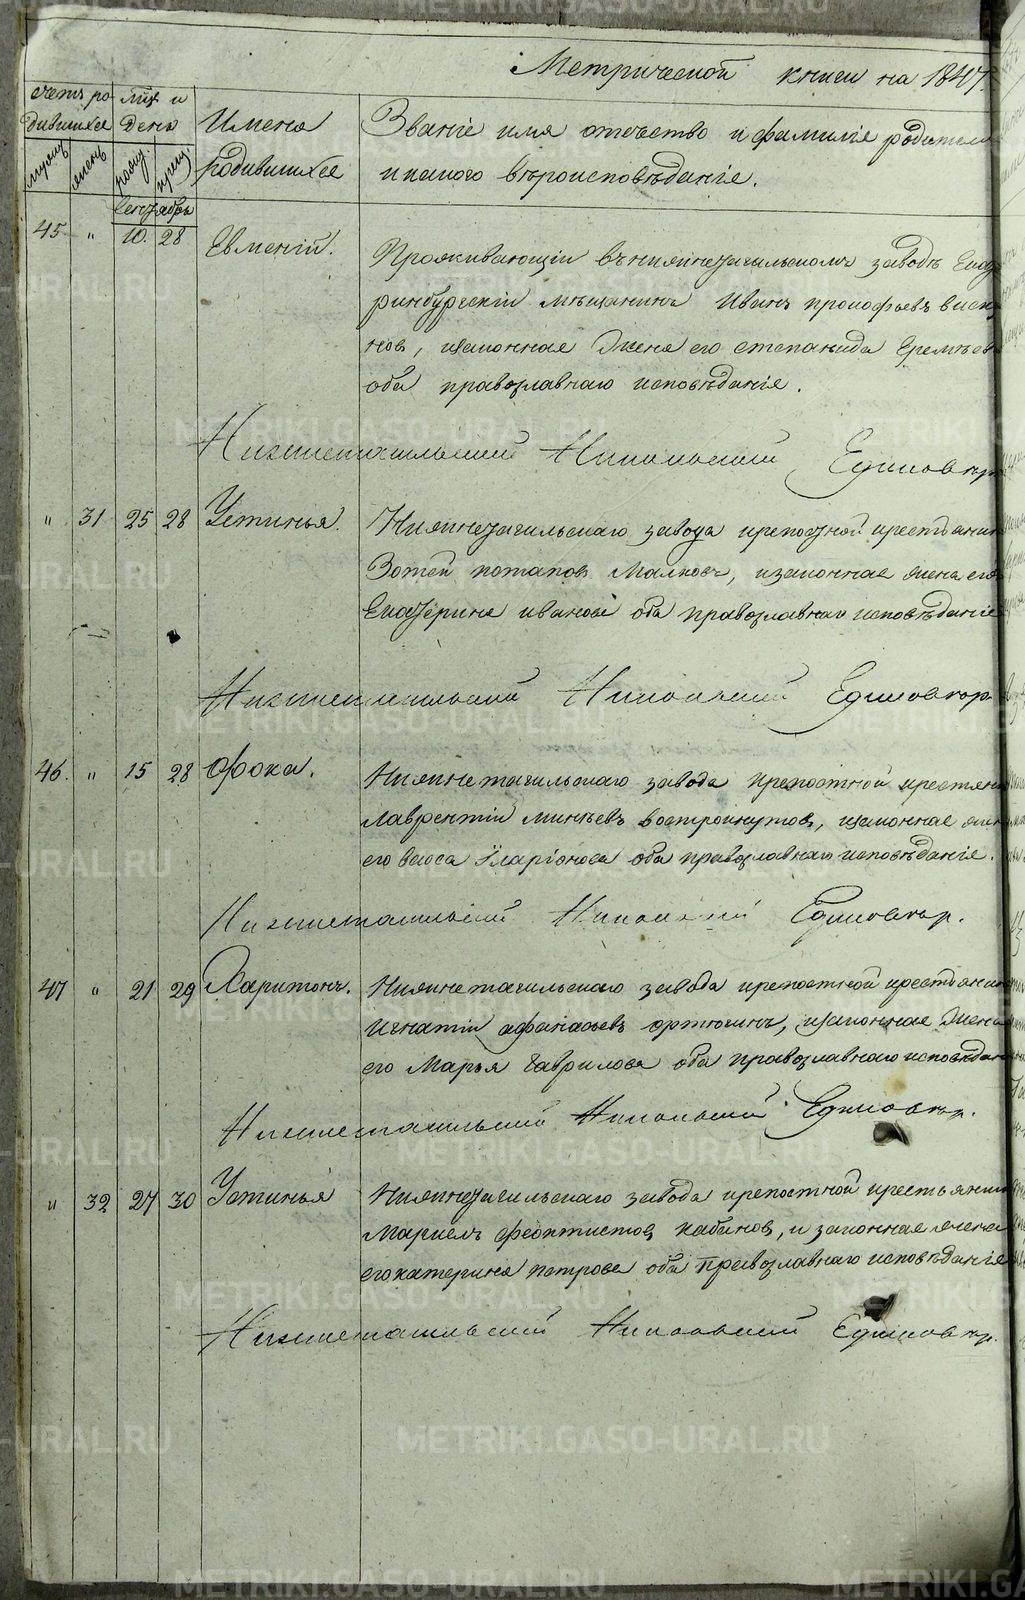 Метрической книги на 1847.
счетъ ро- мцъ и
дившихся день Имена Званіе имя отчество и фамиліе родителе
мужск женск рожд. крещ. родившихся и какого вѣроисповѣданія.
Сентябрь
45 " 10. 28 Евменій. Проживающій въ нижнетагильскомъ заводѣ Екате
ринбургскій мѣщанинъ Иванъ прокофьевъ
нов, изаконная Жена его степанида Еремѣев
оба православнаго исповѣданія.
Нижнетагильский Никольский Единовер
" 31 25 28 Устинья. Нижнетагильскаго завода крепостной крестьянин
Зотей потапов Малковъ, изаконная жена его
Екатерина иванова оба православнаго исповѣданія
Нижнетагильский Никольский Единовер.
46. " 15 28 Фока. Нижнетагильскаго завода крепостной крестьяни
лаврентій минѣевъ востроknутов, изаконная жен
его васса Иларіонова оба православнаго исповѣданія.
Нижнетагильский Никольский Единовер.
47 " 21 29 Харитонъ. Нижнетагильскаго завода крепостной крестьянин
Игнатій афанасьевъ ортюгинъ, изаконная Жена
его Марья Гаврилова оба православнаго исповѣдан
Нижнетагильский Никольский Единовер.
" 32 27 30 Устинья Нижнетагильскаго завода крепостной крестьянин
Маркелъ феоктистов кабанов, и законная жена
его катерина петрова оба православнаго исповѣданія
Нижнетагильский Никольский Единовер.
METRIKI.GASO-URAL.RU